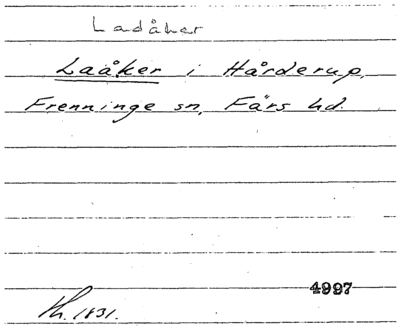 Ladåker
Laåker i Hårderup,
Frenninge sn, Färs hd.
4997
Th. 1831.